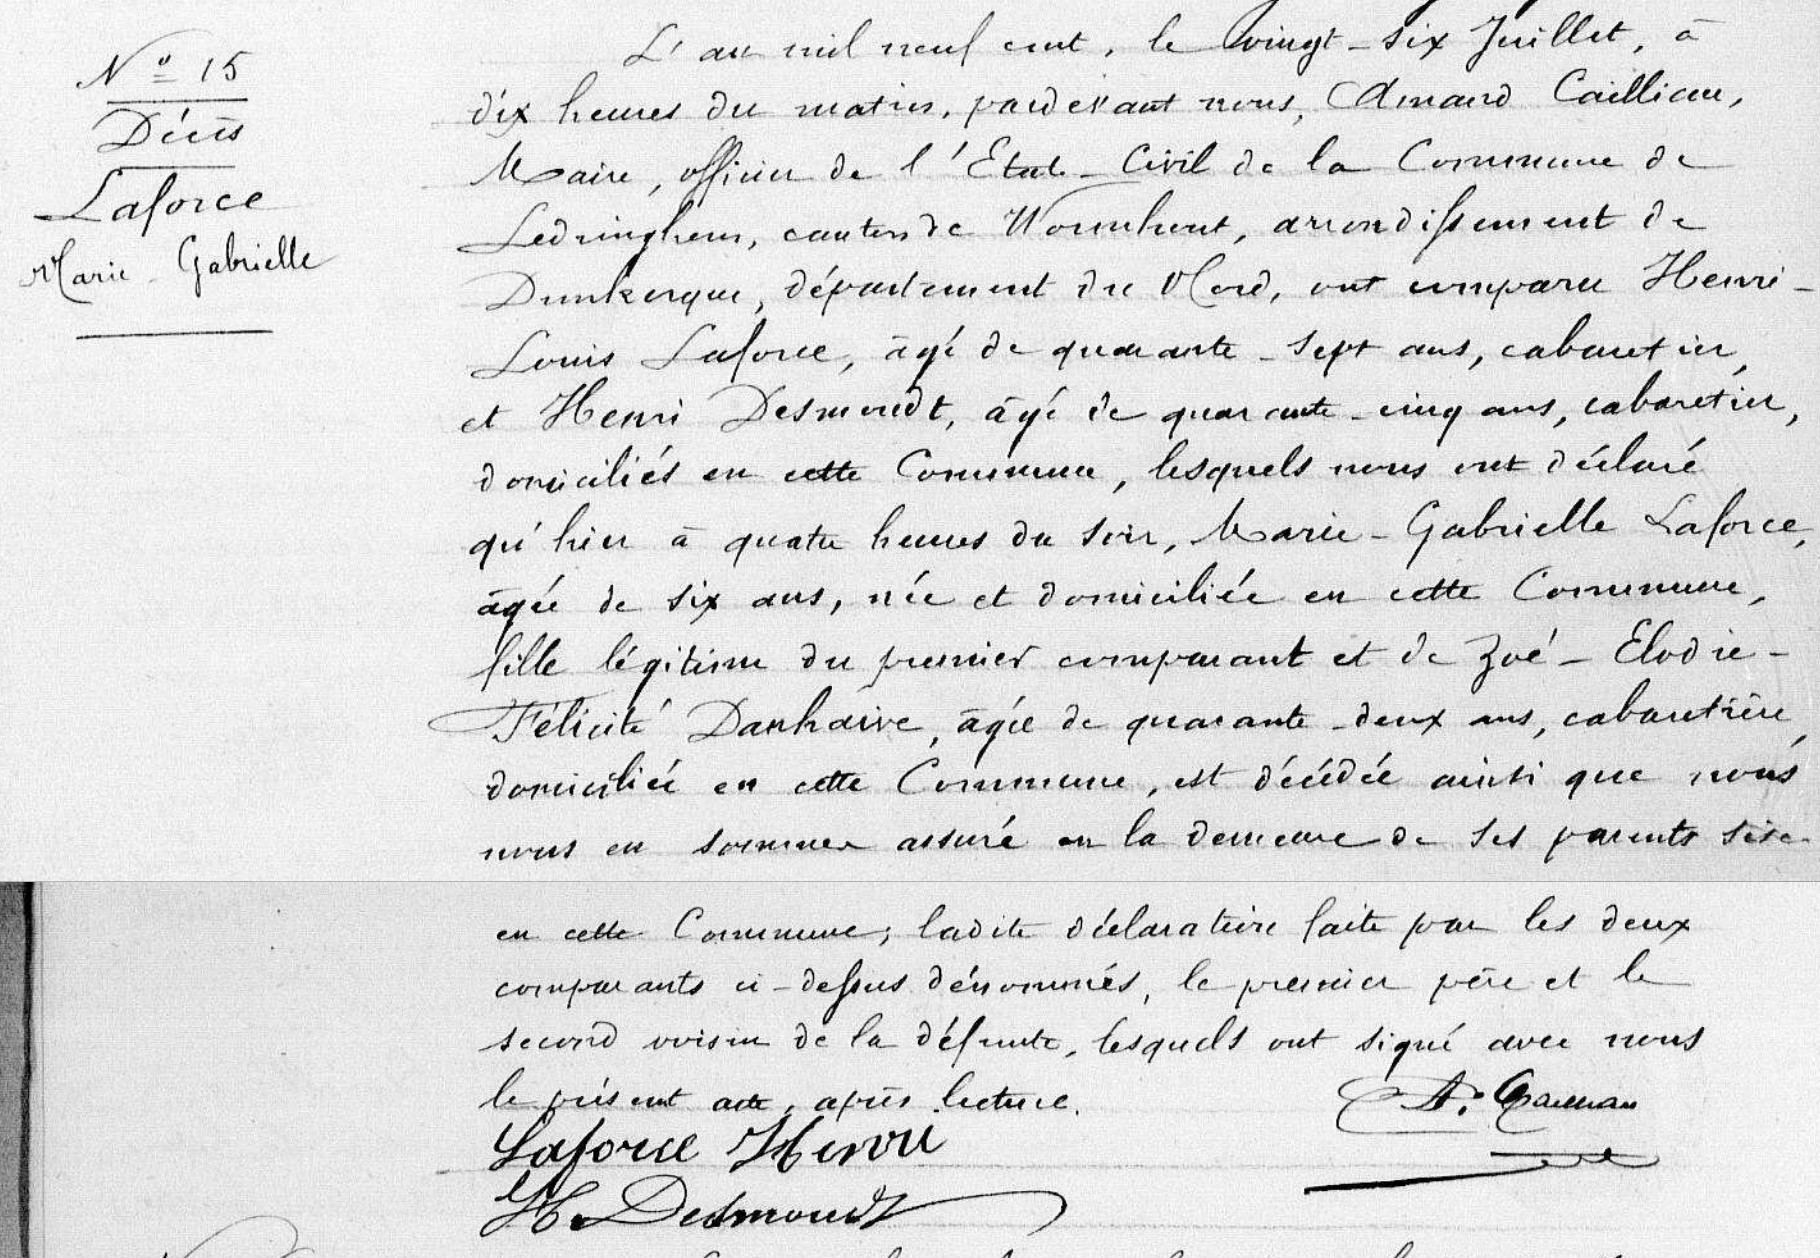 N° 15
Décès
Laforce
Marie - Gabrielle
L'an mil neuf cent, le vingt-six Juillet, à
dix heures du matin, pardevant nous, Amand Cailliau,
Maire, officier de l'Etat-Civil de la Commune de
Ledringhem, canton de Wormhout, arrondissement de
Dunkerque, département du Nord, ont comparu Henri-
Louis Laforce, âgé de quarante-sept ans, cabaretier,
et Henri Desmoudt, âgé de quarante-cinq ans, cabaretier,
domiciliés en cette Commune, lesquels nous ont déclaré
qu'hier à quatre heures du soir, Marie-Gabrielle Laforce,
âgée de six ans, née et domiciliée en cette Commune,
fille légitime du premier comparant et de Zoé-Elodie-
Félicité Danhaive, âgée de quarante-deux ans, cabaretière,
domiciliée en cette Commune, est décédée ainsi que nous
nous en sommes assuré en la demeure de ses parents sise
en cette Commune; ladite déclaration faite par les deux
comparants ci-dessus dénommés, le premier père et le
second voisin de la défunte, lesquels ont signé avec nous
le présent acte, après lecture.
A. Cailliau
Laforce Henri
H. Desmoudt